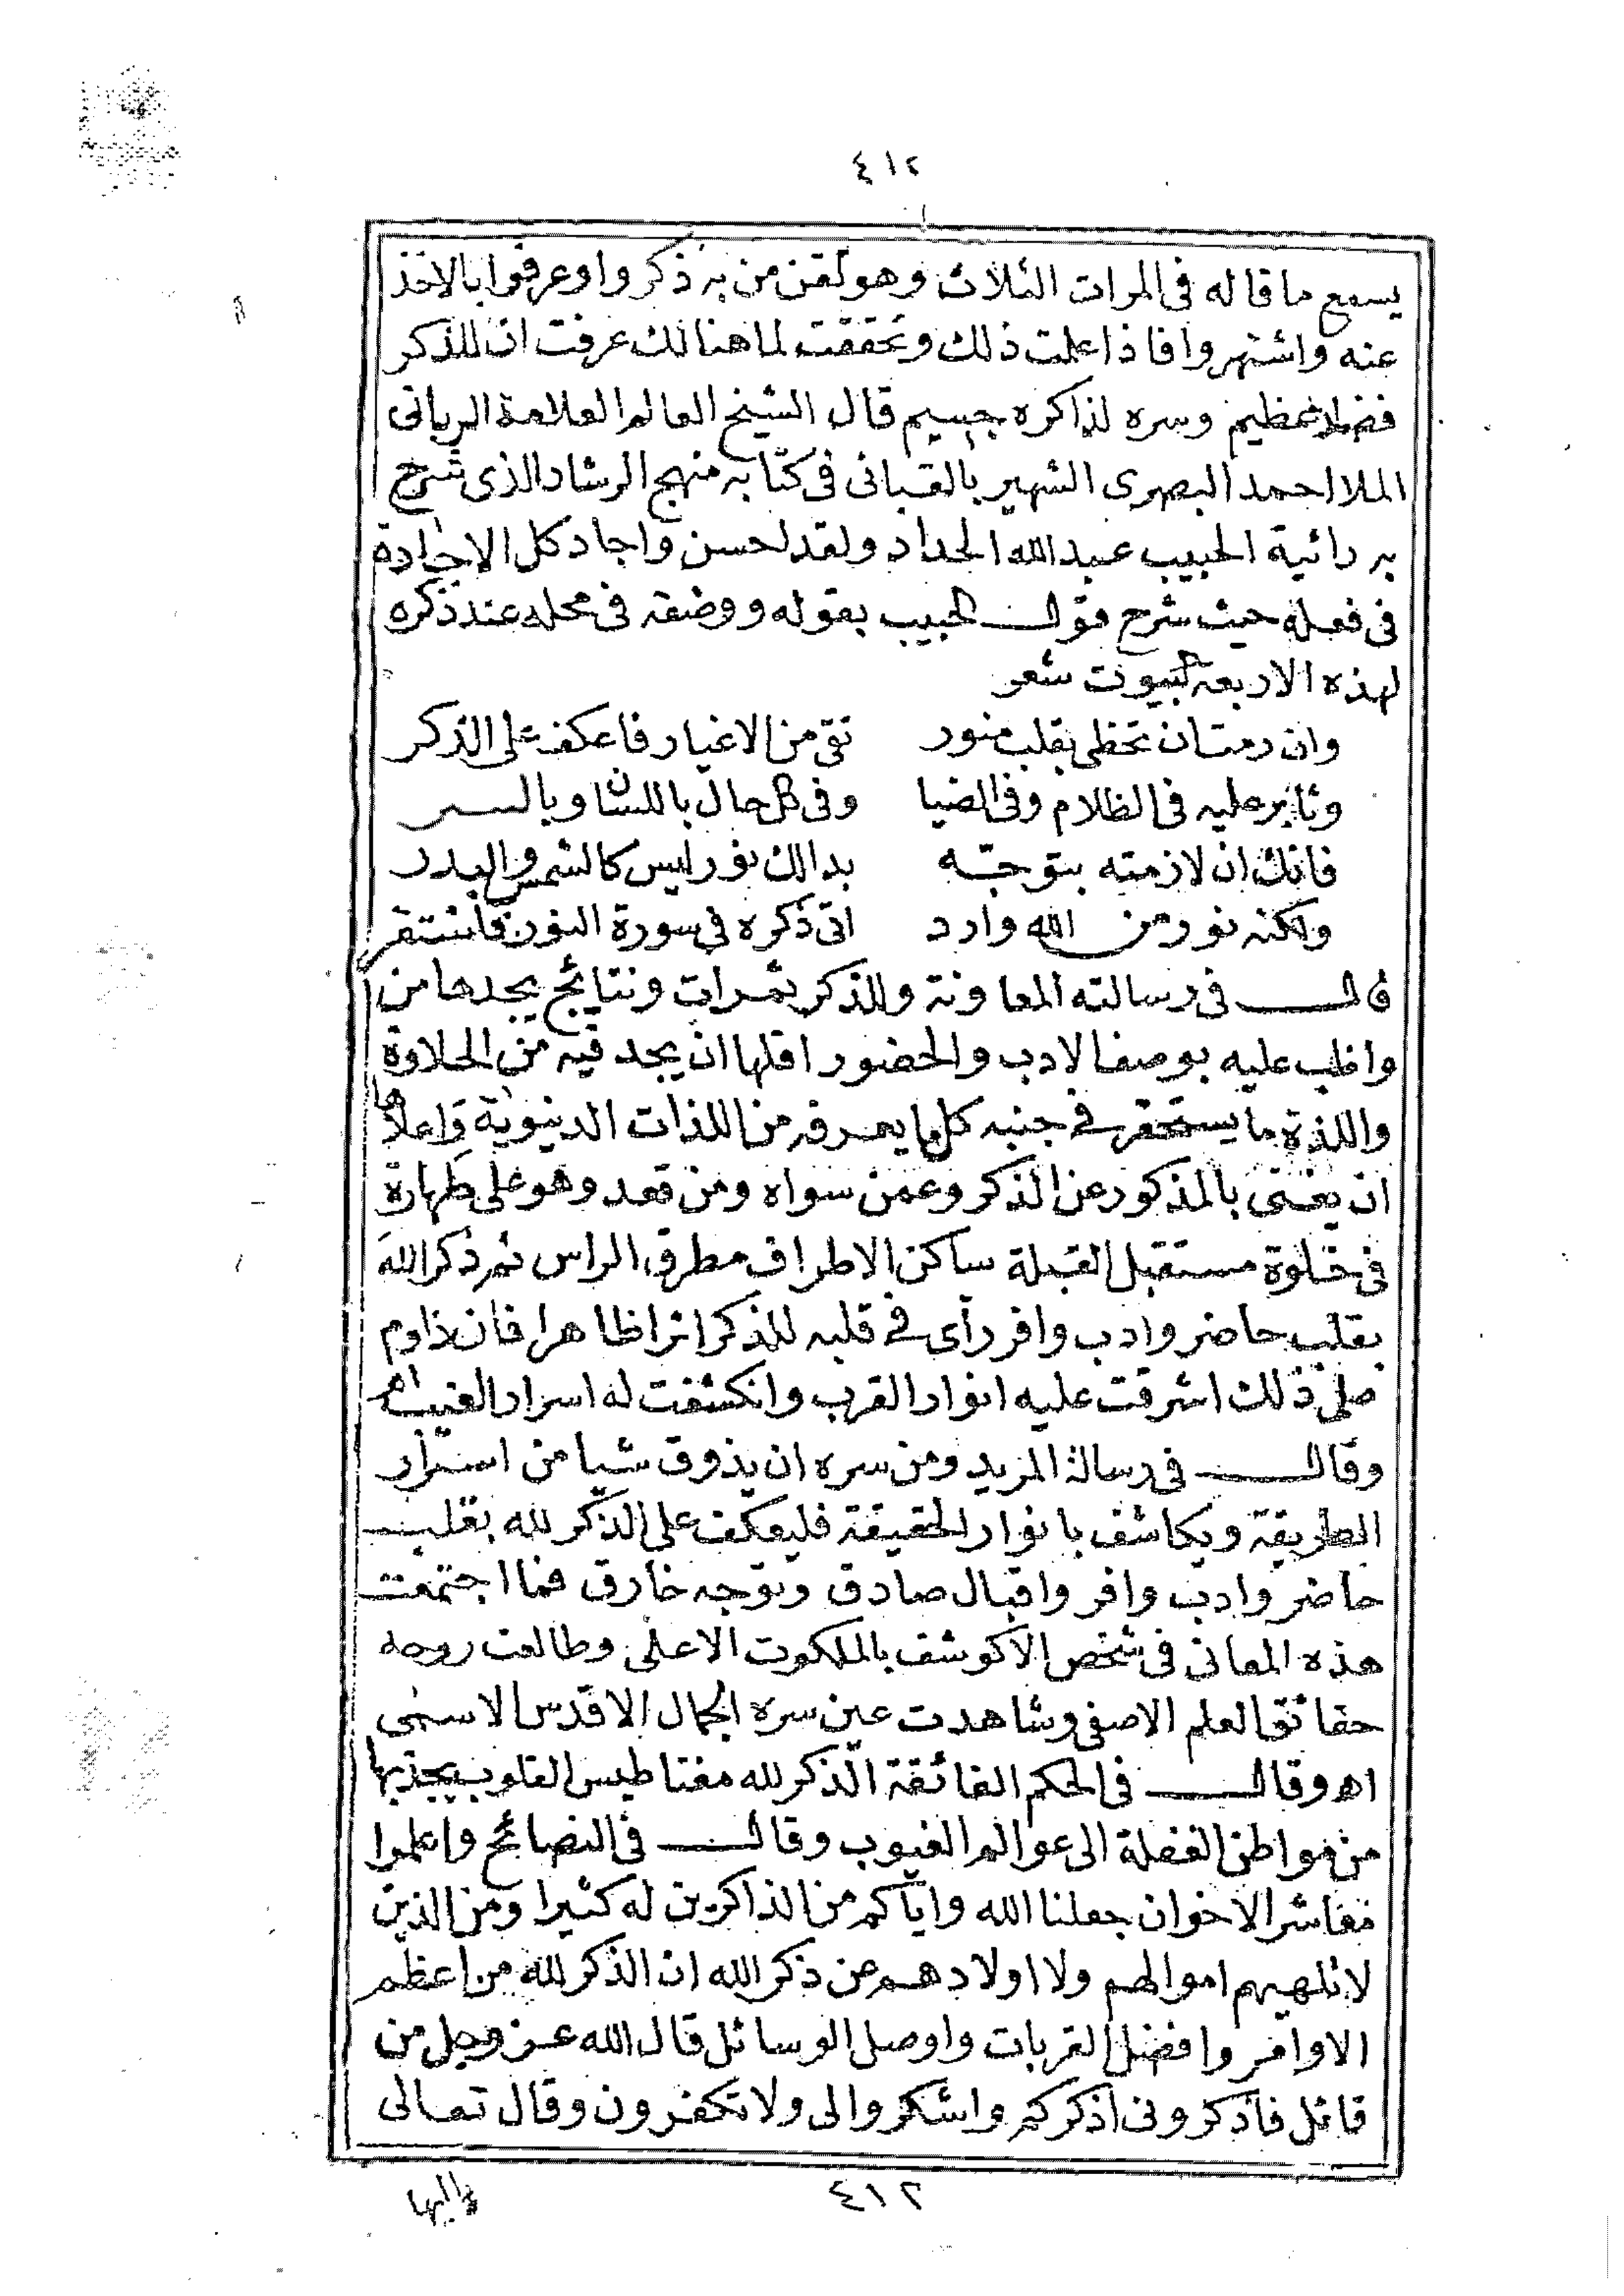 ٤١٢
يسمع ما قاله فى المرات الثلاث وهو لقن من به ذكروا وعرفوا بالاخذ
عنه واشتهروا فاذا علمت ذلك وتحققت لما هنالك عرفت ان للذكر
فضلا عظيم وسره لذاكره جسيم قال الشيخ العالم العلامة الربانى
الملا احمد البصرى الشهير بالقبانى فى كتابه منهج الرشاد الذى شرح
به رائية الحبيب عبد الله الحداد ولقد احسن واجاد كل الاجادة
فى فعله حيث شرح قول الحبيب بقوله ووضعه فى محله عند ذكره
لهذه الاربعة البيوت شعر
وان رمت ان تحظى بقلب منور نقى من الاغيار فاعكف على الذكر
وثابر عليه فى الظلام وفى الضيا وفى كل حال باللسان وبالسر
فانك ان لازمته بتوجه بدا لك نور ليس كالشمس والبدر
ولكنه نور من الله وارد اتى ذكره فى سورة النور فاستقر
قال فى رسالته المعاونة وللذكر ثمرات ونتائج يجدها من
واظب عليه بوصف الادب والحضور اقلها ان يجد فيه من الحلاوة
واللذة ما يستحقر فى جنبه كل ما يعرفه من اللذات الدنيوية واعلاها
ان يفنى بالمذكور عن الذكر وعمن سواه ومن قعد وهو على طهارة
فى خلوة مستقبل القبلة ساكن الاطراف مطرق الراس ثم ذكر الله
بقلب حاضر وادب وافر رأى فى قلبه للذكر اثرا ظاهرا فان داوم
على ذلك اشرقت عليه انوار القرب وانكشفت له اسرار الغيب اهـ
وقال فى رسالة المريد ومن سره ان يذوق شيا من اسرار
الطريقة ويكاشف بانوار الحقيقة فليعكف على الذكر لله بقلب
حاضر وادب وافر واقبال صادق وتوجه خارق فما اجتمعت
هذه المعانى فى شخص الا كوشف بالملكوت الاعلى وطالعت روحه
حقائق العلم الاصفى وشاهدت عين سره الجمال الاقدس الاسمى
اهـ وقال فى الحكم الفائقة الذكر لله مغناطيس القلوب يجذبها
من مواطن الغفلة الى عوالم الغيوب وقال فى النصائح واعلموا
معاشر الاخوان جعلنا الله واياكم من الذاكرين له كثيرا ومن الذين
لا تلهيهم اموالهم ولا اولادهم عن ذكر الله ان الذكر لله من اعظم
الاوامر وافضل القربات واوصل الوسائل قال الله عز وجل من
قائل فاذكرونى اذكركم واشكروا لى ولا تكفرون وقال تعالى
٤١٢